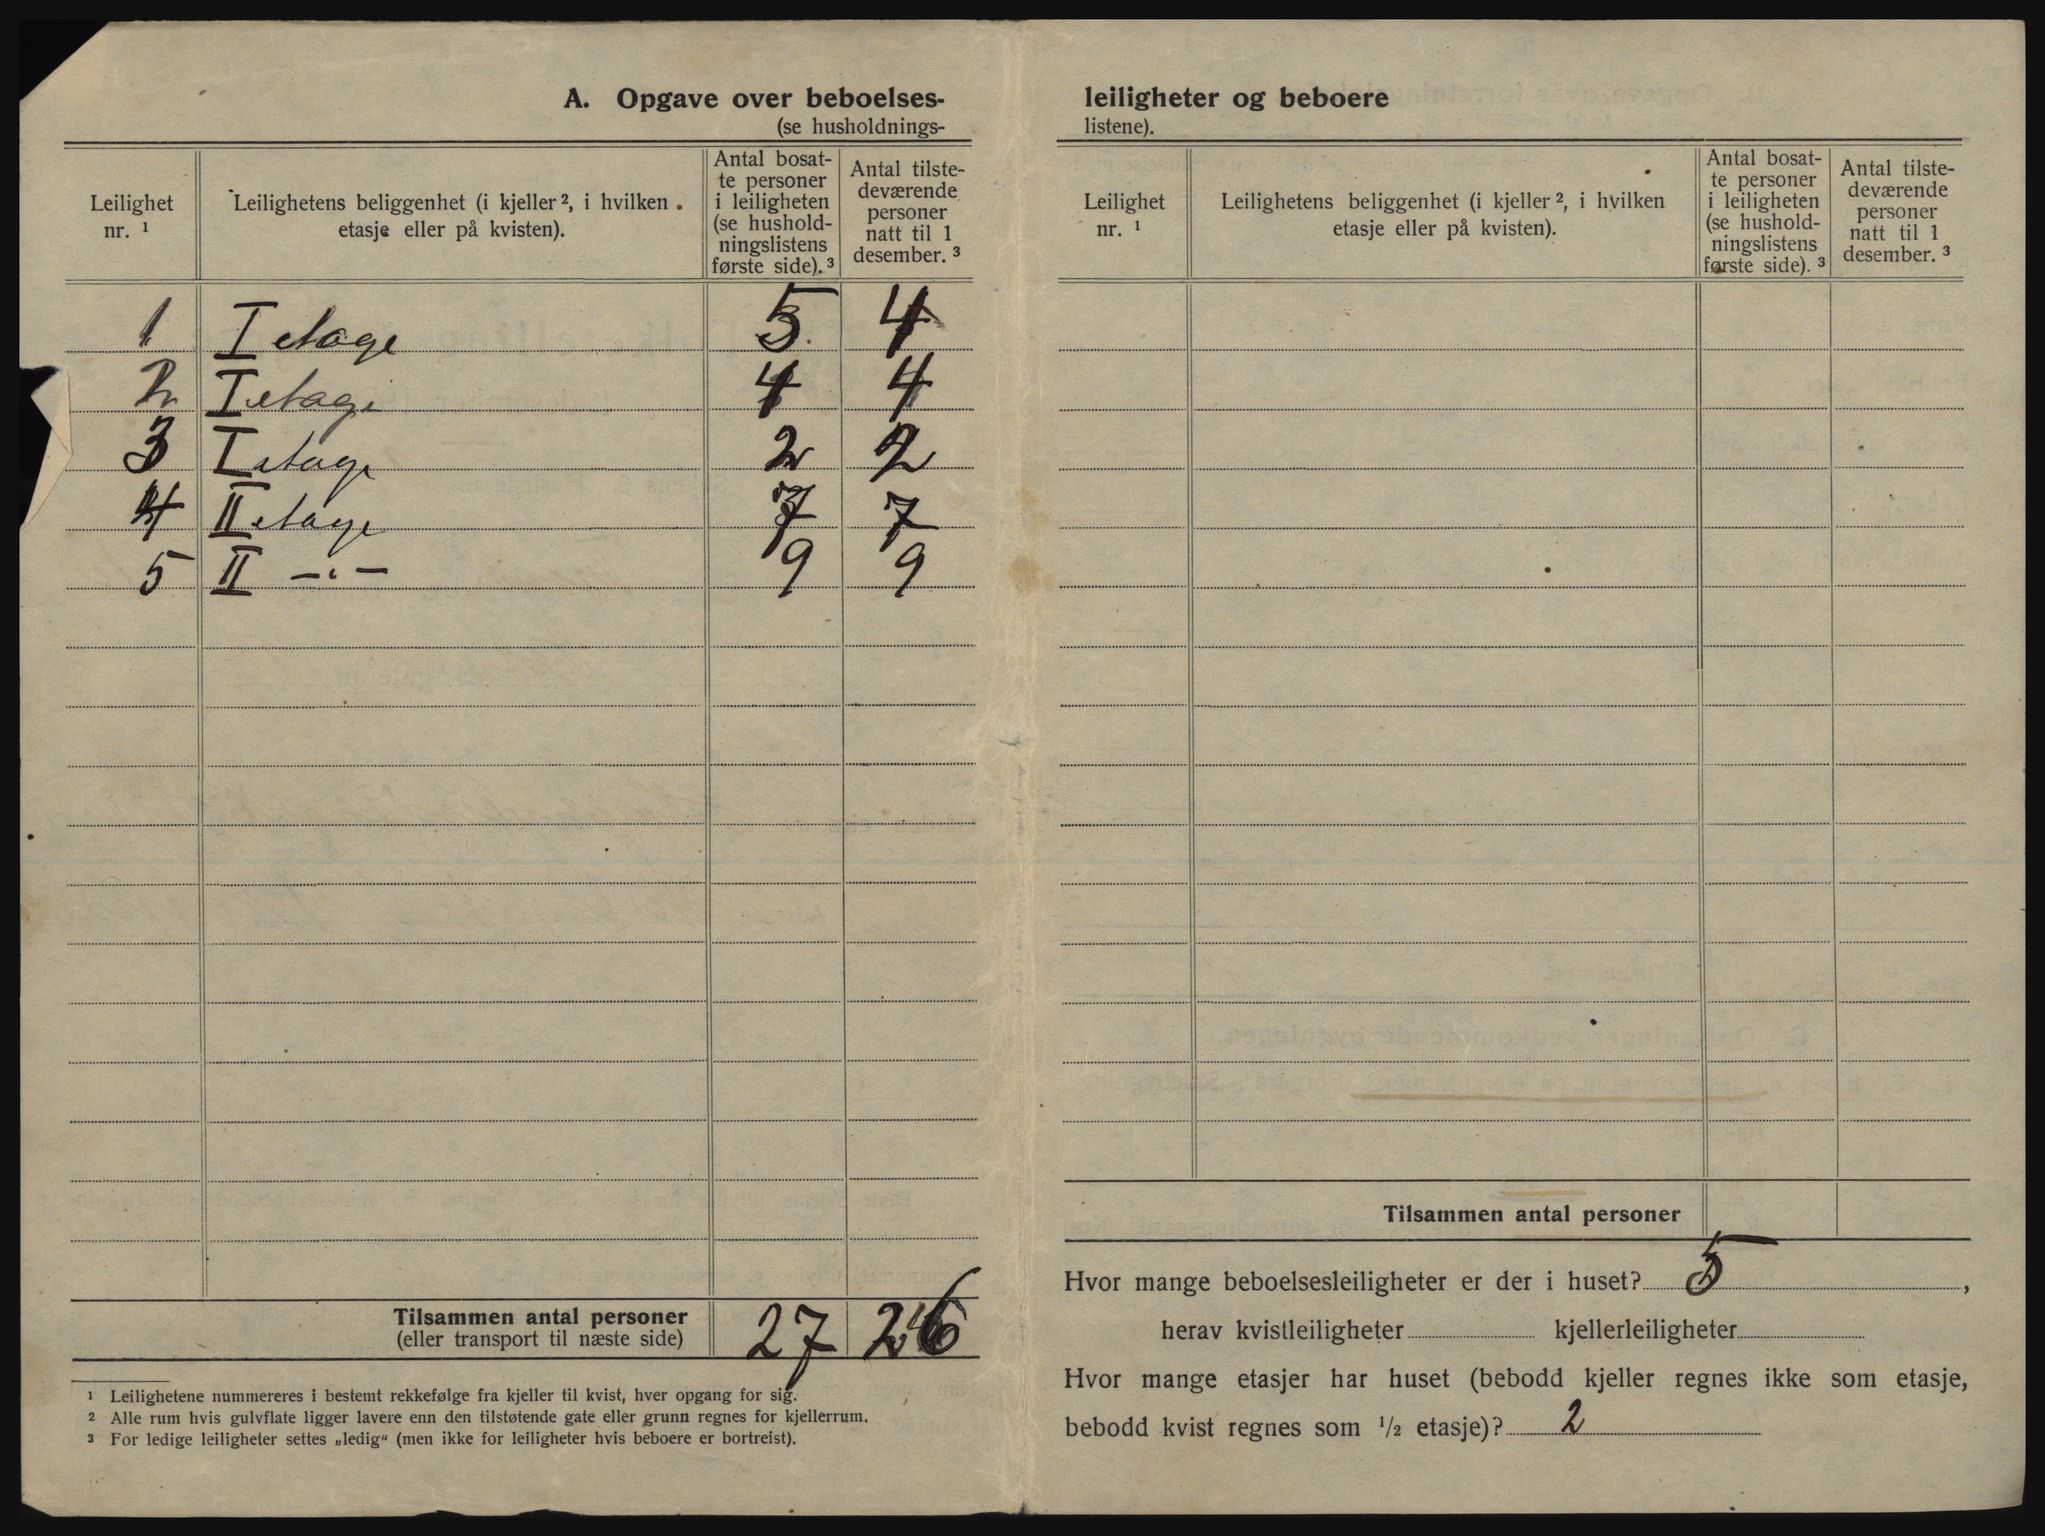 A. Opgave over beboelses-
(se husholdnings-
Leilighet nr. ¹
Leilighetens beliggenhet (i kjeller ², i hvilken etasje eller på kvisten).
Antal bosat-
te personer
i leiligheten
(se hushold-
ningslistens
første side). ³
Antal tilste-
deværende
personer
natt til 1
desember. ³
1 I etage 5 4
2 I etage 4 4
3 I etage 2 2
4 II etage 7 7
5 II —„— 9 9
Tilsammen antal personer 27 26
(eller transport til næste side)
¹ Leilighetene nummereres i bestemt rekkefølge fra kjeller til kvist, hver opgang for sig.
² Alle rum hvis gulvflate ligger lavere enn den tilstøtende gate eller grunn regnes for kjellerrum.
³ For ledige leiligheter settes „ledig“ (men ikke for leiligheter hvis beboere er bortreist).
leiligheter og beboere
listene).
Leilighet nr. ¹
Leilighetens beliggenhet (i kjeller ², i hvilken etasje eller på kvisten).
Antal bosat-
te personer
i leiligheten
(se hushold-
ningslistens
første side). ³
Antal tilste-
deværende
personer
natt til 1
desember. ³
Tilsammen antal personer
Hvor mange beboelsesleiligheter er der i huset? 5 ,
herav kvistleiligheter kjellerleiligheter
Hvor mange etasjer har huset (bebodd kjeller regnes ikke som etasje,
bebodd kvist regnes som ½ etasje)? 2